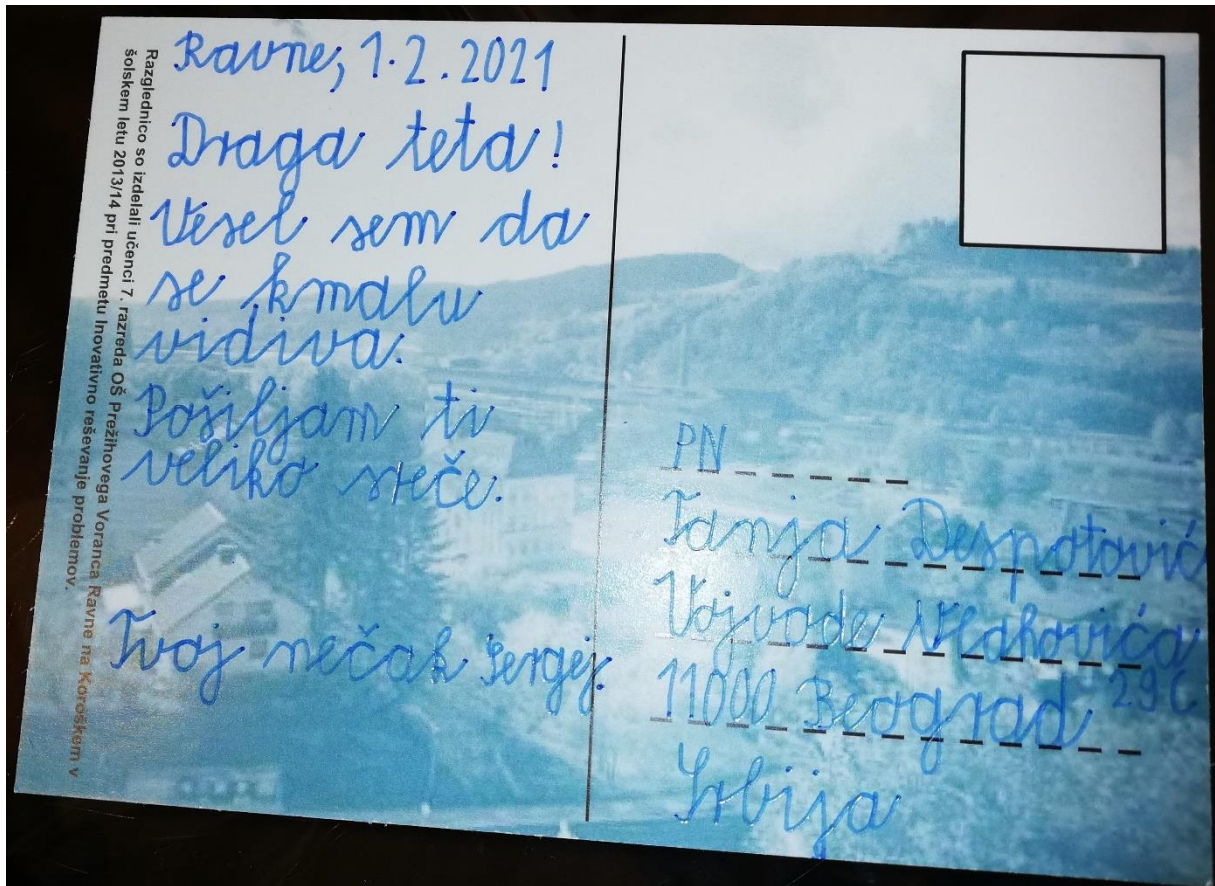 Razglednico so izdelali učenci 7. razreda OŠ Prežihovega Voranca Ravne na Koroškem v
šolskem letu 2013/14 pri predmetu Inovativno reševanje problemov.
Ravne, 1.2.2021
Draga teta!
Vesel sem da
se kmalu
vidiva.
Pošiljam ti
veliko sreče.
Tvoj nečak Sergej.
PN
Tanja Despotović
Vojvode Vlahovića
29C
11000 Beograd
Srbija